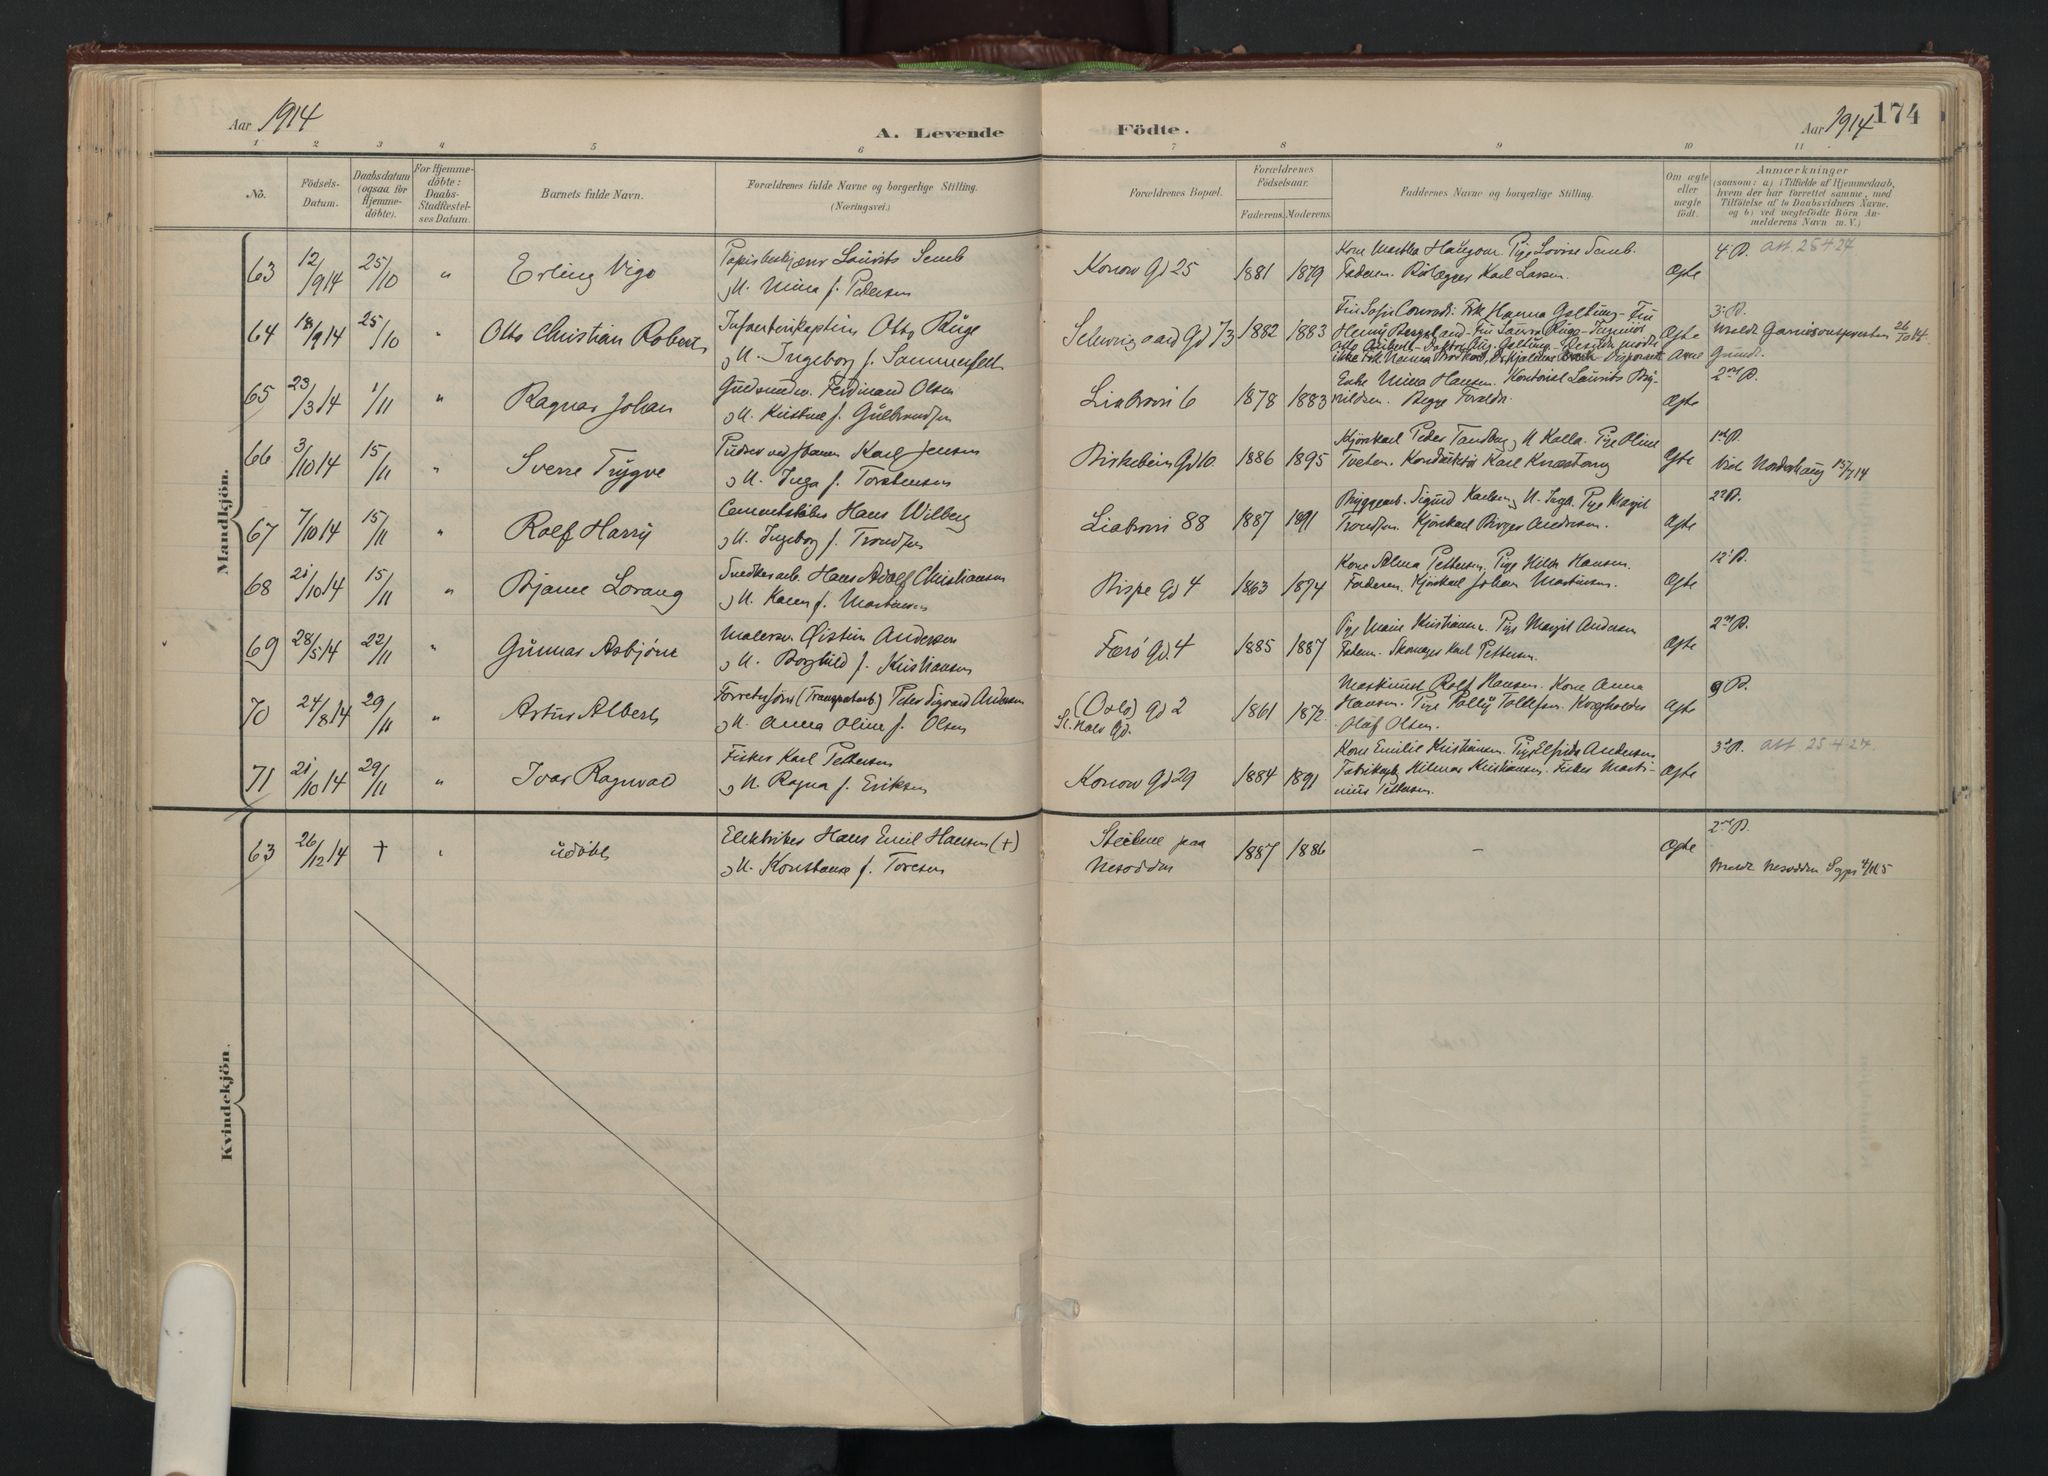 Aar 1914
A. Levende
Födte.
Aar 1914
174
1 2 3 4 5 6 7 8 9 10 11
No.
Födsels-
Datum.
Daabsdatum
(ogsaa for
Hjemme-
döbte).
For Hjemme-
döbte:
Daabs-
Stadfæstel-
ses Datum.
Barnets fulde Navn.
Forældrenes fulde Navne og borgerlige Stilling.
(Næringsvei.)
Forældrenes Bopæl.
Forældrenes
Födselsaar.
Faderens. Moderens.
Faddernes Navne og borgerlige Stilling.
Om ægte
eller
uægte
födt.
Anmærkninger
(saasom: a) i Tilfælde af Hjemmedaab,
hvem der har forrettet samme, med
Tilföielse af to Daabsvidners Navne,
og b) ved uægtefödte Börn An-
melderens Navn m. V.)
Mandkjön.
63 12/9 14 25/10 " Erling Vigo
Laurits Semb
o H. Mina f. Pedersen
Konow Gd 25 1881 1879
Kone Martha Haugom. Pige Lovise Semb.
Faderen. Rørlægger Karl Larsen.
Ægte
4. B. att 25 4 27
64 18/9 14 25/10 " Otto Christian Robert
Infanterikaptein Otto Ruge
o H. Ingeborg f. Sommerfeldt
Schweigaard Gd 73 1882 1883
Fru Sofie Conradi. Frk Hanna Galtung - Fru
Henny Bergeland - Fru Laura Ruge - Ingeniør
Otto Aubert - Doktor Aug. Galtung -
Ægte
3. B.
Meldt Garnisonspresten 26/10 14.
65 23/3 14 1/11 " Ragnar Johan
Ferdinand Olsen
o H. Kristine f. Gulbrandsen
Liabrovei 6 1878 1883
Enke Mina Hansen. Kontorist Laurits
Begge Foreldr.
Ægte
2den B.
66 3/10 14 15/11 " Sverre Trygve
Karl Jensen
o H. Inga f. Torstensen
Birkebein Gd 10. 1886 1895
Kjørekarl Peder Tandberg o H Kalla. Pige Oline
Tveten. Konduktør Karl
Ægte
1ste B.
Norderhaug 15/7 14
67 7/10 14 15/11 " Rolf Harry
Cementstøber Hans Wilberg
o H. Ingeborg f. Trondsen
Liabrovei 88 1887 1891
Bryggearb. Sigurd Karlsen o H. Inga. Pige Margit
Trondsen. Kjørekarl Birger Andersen.
Ægte
2den B.
68 21/10 14 15/11 " Bjarne Lorang
Snedkerarb. Hans Adolf Christiansen
o H. Karen f. Martinsen
Bispe Gd 4 1863 1874
Kone Alma Pettersen. Pige Hilda Hansen.
Faderen. Kjørekarl Johan Martinsen.
Ægte
12. B.
69 28/5 14 22/11 " Gunnar Asbjørn
Malersv. Øistein Andersen
o H. Borghild f. Kristiansen
Færø Gd. 4 1885 1887
Pige Marie Kristiansen. Pige Margit Andersen
Faderen. Skomager Karl Pettersen.
Ægte
2den B.
70 24/8 14 29/11 " Artur Albert
(Transportarb) Peter Sigvard Andersen
o H. Anna Oline f. Olsen
(Oslo) Gd 2
St. Halv Gd. 1861 1872.
Maskinist Rolf Hansen. Kone Anna
Hansen. Pige Polly Tollefsen.
Olaf Olsen.
Ægte
9 B.
71 21/10 14 29/11 " Ivar Ragnvald
Fisker Karl Pettersen
o H. Ragna f. Eriksen
Konow Gd 29 1884 1891
Kone Emilie Kristiansen. Pige Elfrida Andersen
Fabrikarb. Hilmar Kristiansen. Fisker Marti-
nius Pettersen.
Ægte
3d B. att. 25 4 27.
Kvindekjön.
63 26/12 14 † " udøbt
Elektriker Hans Emil Hansen (+)
o H. Konstanse f. Toresen
Steilene paa
Nesodden
1887 1886
-
Ægte
2den B.
Meldt Nesodden Sgpr 4/1 15